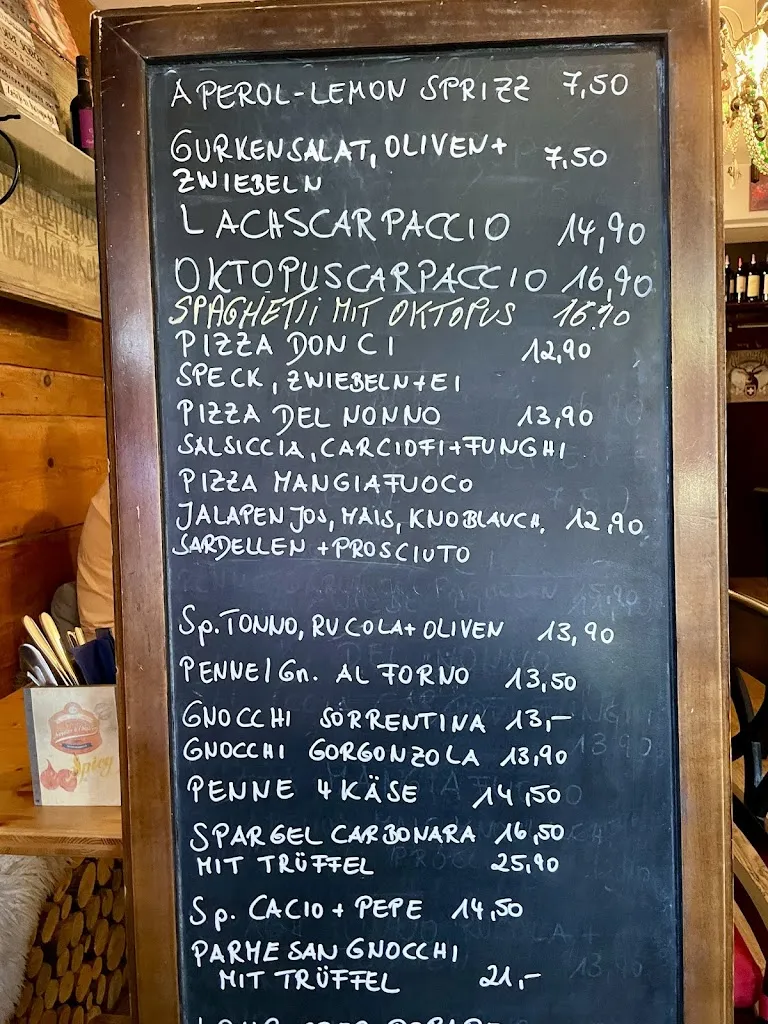 APEROL-LEMON SPRIZZ 7,50
GURKENSALAT, OLIVEN+ 7,50
ZWIEBELN
LACHSCARPACCIO 14,90
OKTOPUSCARPACCIO 16,90
SPAGHETTi MIT OKTOPUS 16.90
PIZZA DON CI 12,90
SPECK, ZWIEBELN+EI
PIZZA DEL NONNO 13,90
SALSICCIA, CARCIOFI+FUNGHI
PIZZA MANGIAFUOCO
JALAPENJOS, MAIS, KNOBLAUCH, 12,90
SARDELLEN +PROSCIUTO
Sp. TONNO, RUCOLA+ OLIVEN 13,90
PENNE/Gn. AL FORNO 13,50
GNOCCHI SORRENTINA 13,-
GNOCCHI GORGONZOLA 13,90
PENNE 4 KÄSE 14,50
SPARGEL CARBONARA 16,50
MIT TRÜFFEL 25,90
Sp. CACIO + PEPE 14,50
PARMESAN GNOCCHI
MIT TRÜFFEL 21,-
Spicy